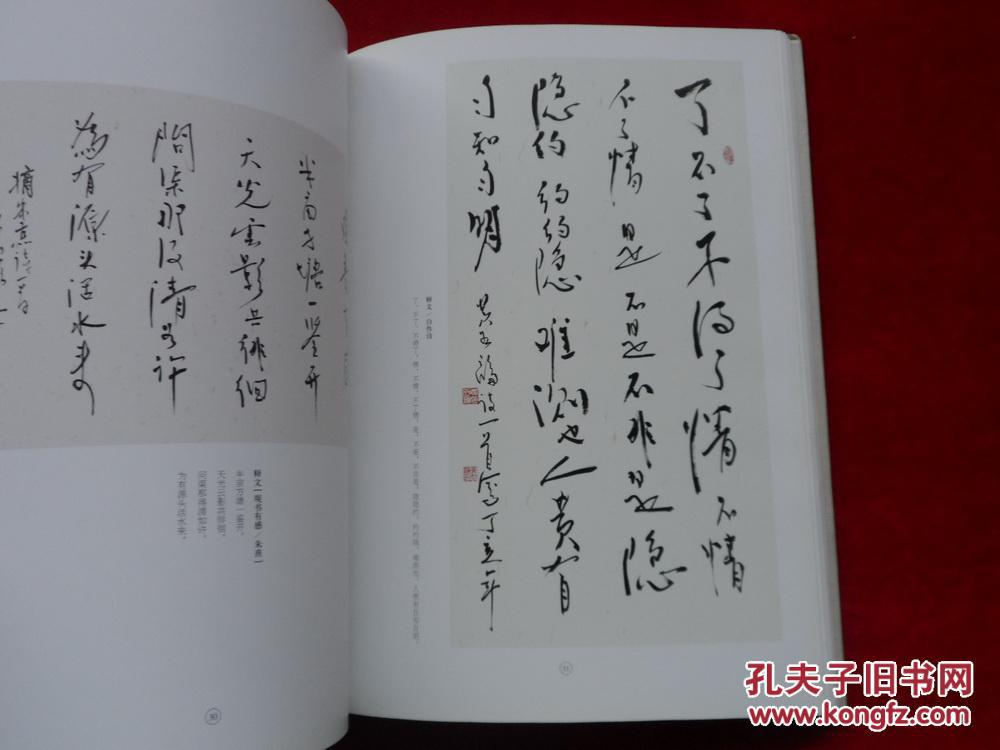 半亩方塘一鉴开
天光雲影共徘徊
問渠那得清如许
為有源头活水来
摘朱熹诗一首
释文「观书有感／朱熹」
半亩方塘一鉴开，
天光云影共徘徊。
问渠那得清如许，
为有源头活水来。
30
了不了不得了情不情
不了情是不是不非是隐
隐约约约隐难测也人贵有
自知自明
诗一首写丁亥年
释文／自作诗
了，不了，不得了。情，不情，不了情。是，不是，不非是。隐隐约，约约隐，难测也。人贵有自知自明。
31
孔夫子旧书网
www.kongfz.com